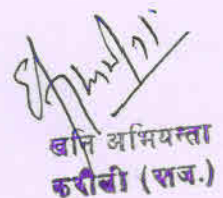 खनि अभियन्ता
करौली (राज.)